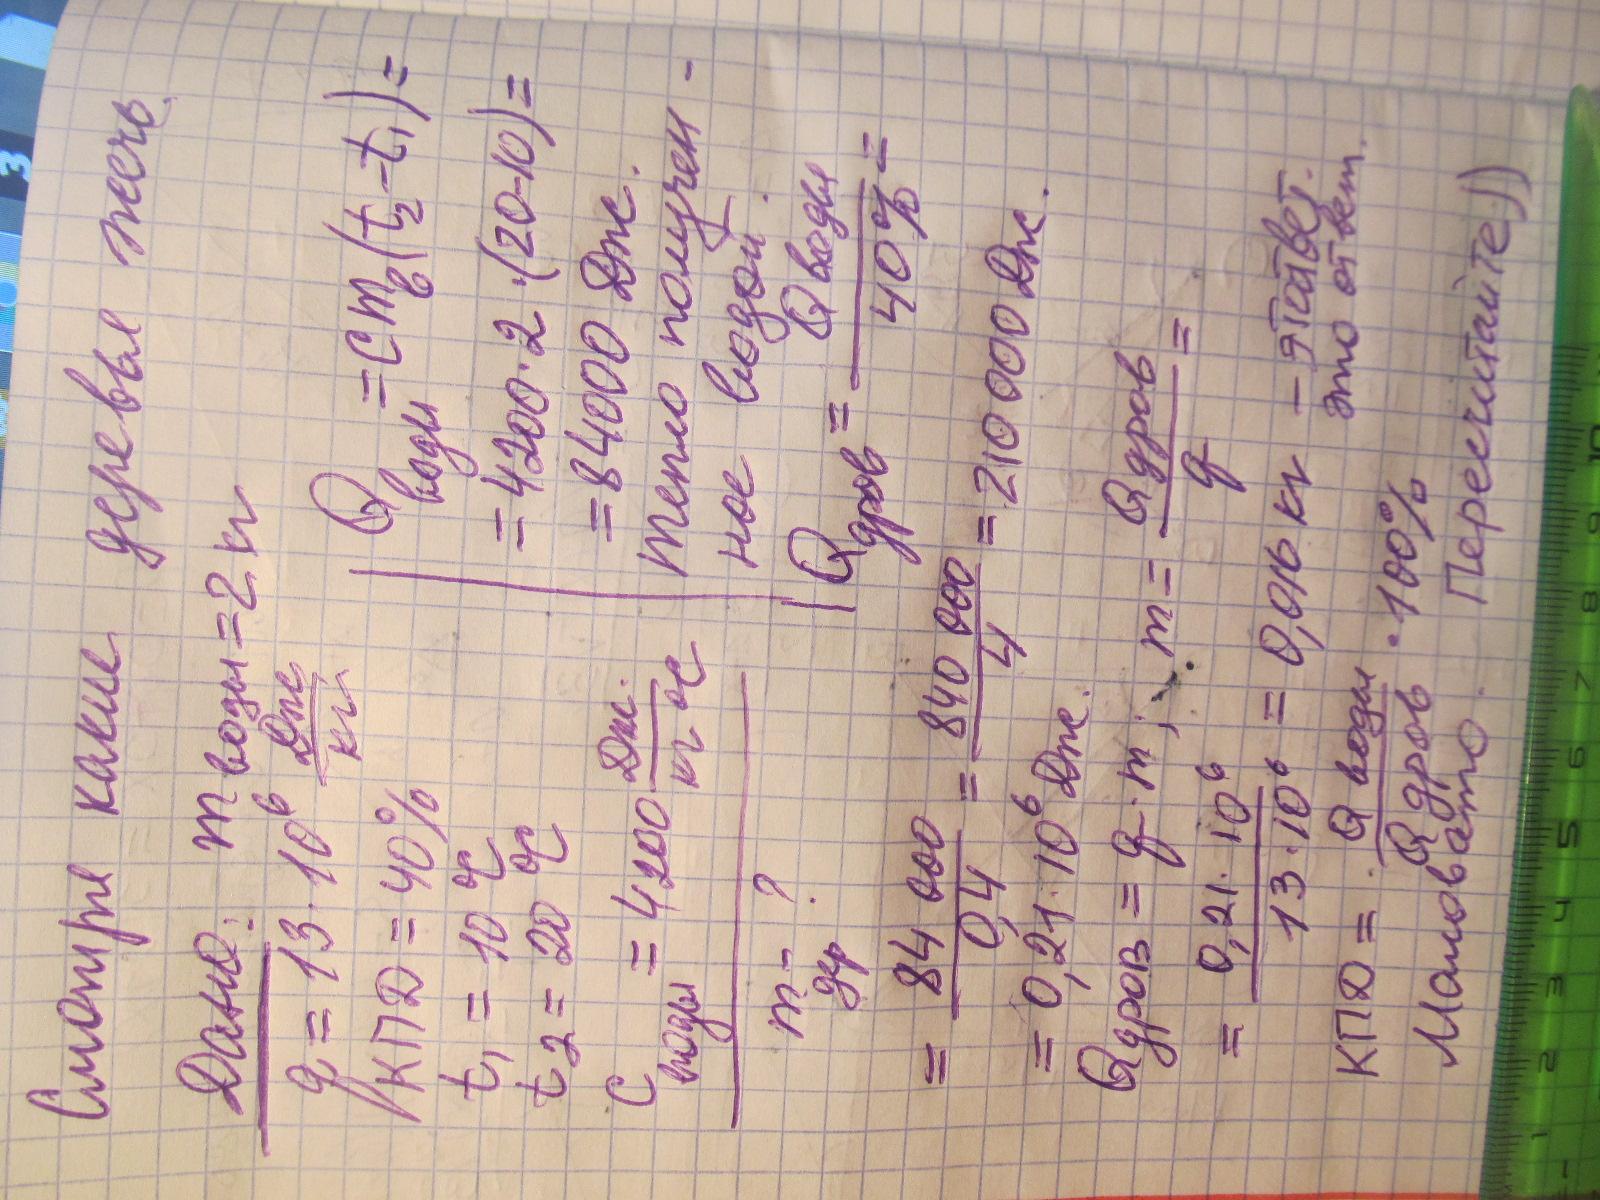 Смотря какие деревья жечь.
Дано: m воды = 2 кг
q = 13 · 10⁶ Дж/кг
КПД = 40%
t₁ = 10 °C
t₂ = 20 °C
C воды = 4200 Дж/кг °C
m др - ?
Q воды = c m в (t₂ - t₁) =
= 4200 · 2 · (20-10) =
= 84000 Дж.
тепло получен-
ное водой.
Q дров = Q воды / 40% =
= 84 000 / 0,4 = 840 000 / 4 = 210 000 Дж.
= 0,21 · 10⁶ Дж.
Q дров = q · m ; m = Q дров / q =
= 0,21 · 10⁶ / 13 · 10⁶ = 0,016 кг - этоответ.
это ответ.
КПД = Q воды / Q дров · 100%
Маловато. Пересчитайте))
3
1 2 3 4 5 6 7 8 9 10